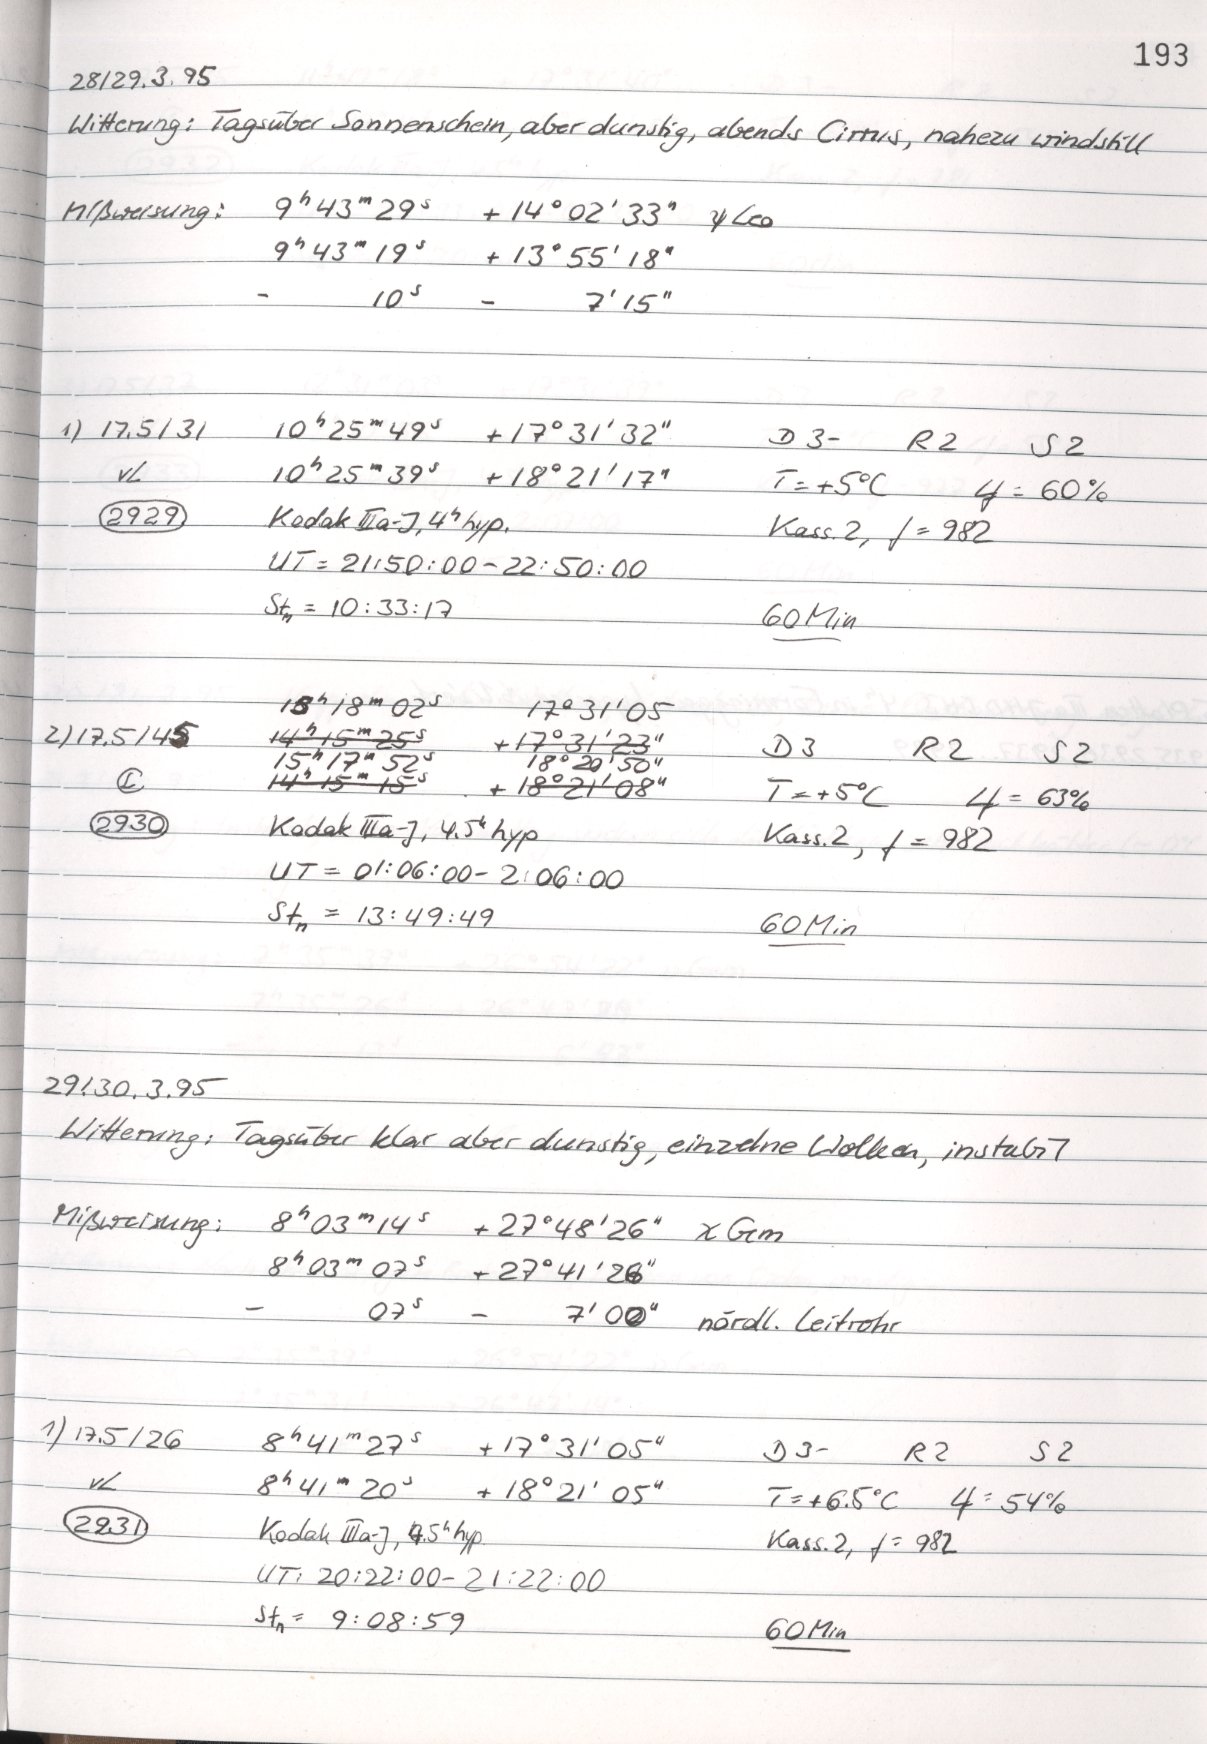 193
28/29.3.95
Witterung: Tagsüber Sonnenschein, aber dunstig, abends Cirrus, nahezu windstill
Mißweisung: 9ʰ43ᵐ29ˢ +14°02'33" ψ Leo
9ʰ43ᵐ19ˢ +13°55'18"
- 10ˢ - 7'15"
1) 17.5/31 10ʰ25ᵐ49ˢ +17°31'32" D3- R2 S2
vL 10ʰ25ᵐ39ˢ +18°21'17" T=+5°C φ=60%
2929 Kodak IIIa-J, 4ʰ hyp. Kass. 2, f=982
UT=21:50:00-22:50:00
Stₙ=10:33:17 60 Min
15ʰ18ᵐ02ˢ 17°31'05
2) 17.5/45 14ʰ15ᵐ25ˢ +17°31'23" D3 R2 S2
15ʰ17ᵐ52ˢ 18°20'50"
14ʰ15ᵐ15ˢ +18°21'08" T=+5°C φ=63%
2930 Kodak IIIa-J, 4.5ʰ hyp Kass. 2, f=982
UT=01:06:00-2:06:00
Stₙ=13:49:49 60 Min
29/30.3.95
Witterung: Tagsüber klar aber dunstig, einzelne Wolken, instabil
Mißweisung: 8ʰ03ᵐ14ˢ +27°48'26" χ Gem
8ʰ03ᵐ07ˢ +27°41'26"
- 07ˢ - 7'00" nördl. Leitrohr
1) 17.5/26 8ʰ41ᵐ27ˢ +17°31'05" D3- R2 S2
vL 8ʰ41ᵐ20ˢ +18°21'05" T=+6.5°C φ=54%
2931 Kodak IIIa-J, 4.5ʰ hyp. Kass. 2, f=982
UT: 20:22:00-21:22:00
Stₙ= 9:08:59 60 Min